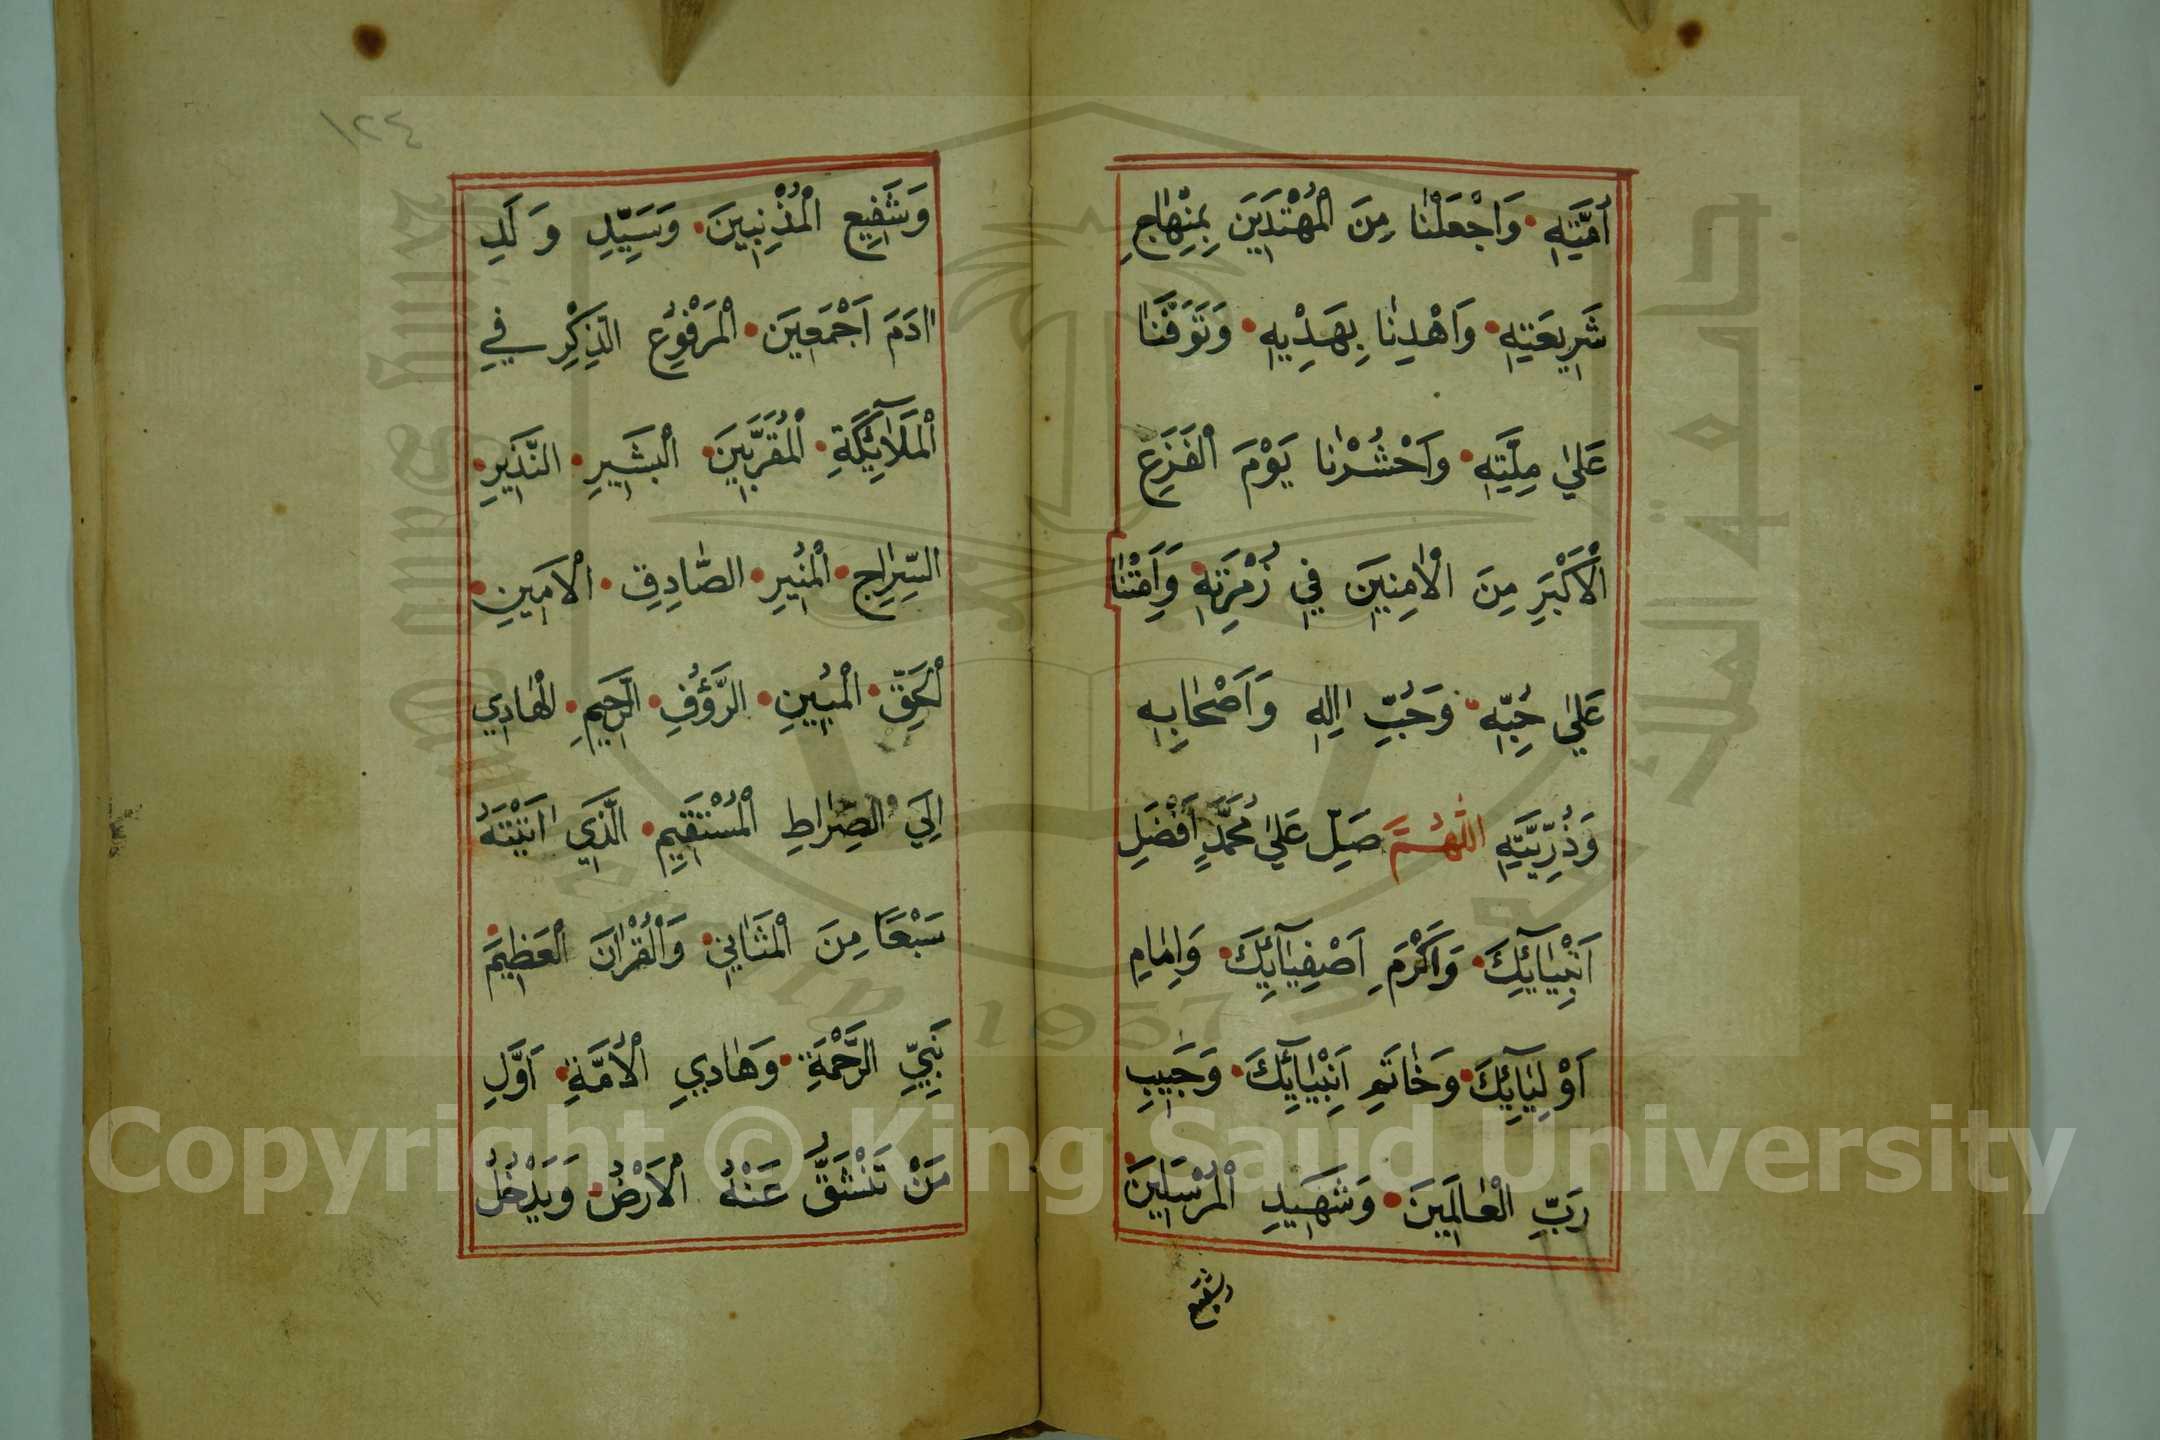 اُمَّتِهِ وَاجْعَلْنَا مِنَ الْمُهْتَدِينَ بِمِنْهَاجِ
شَرِيعَتِهِ وَاهْدِنَا بِهَدْيِهِ وَتَوَفَّنَا
عَلٰي مِلَّتِهِ وَاحْشُرْنَا يَوْمَ الْفَزَعِ
الْاَكْبَرِ مِنَ الْاٰمِنِينَ فِي زُمْرَتِهِ وَاَمِتْنَا
عَلٰي حُبِّهِ وَحُبِّ اٰلِهِ وَاَصْحَابِهِ
وَذُرِّيَّتِهِ اللّٰهُمَّ صَلِّ عَلٰي مُحَمَّدٍ اَفْضَلِ
اَنْبِيَآئِكَ وَاَكْرَمِ اَصْفِيَآئِكَ وَاِمَامِ
اَوْلِيَآئِكَ وَخَاتَمِ اَنْبِيَآئِكَ وَحَبِيبِ
رَبِّ الْعَالَمِينَ وَشَهِيدِ الْمُرْسَلِينَ
وشفيع
١٢٤
وَشَفِيعِ الْمُذْنِبِينَ وَسَيِّدِ وَلَدِ
اٰدَمَ اَجْمَعِينَ الْمَرْفُوعِ الذِّكْرِ فِي
الْمَلَآئِكَةِ الْمُقَرَّبِينَ الْبَشِيرِ النَّذِيرِ
السِّرَاجِ الْمُنِيرِ الصَّادِقِ الْاَمِينِ
الْحَقِّ الْمُبِينِ الرَّؤُفِ الرَّحِيمِ الْهَادِي
اِلَي الصِّرَاطِ الْمُسْتَقِيمِ الَّذِي اٰتَيْتَهُ
سَبْعًا مِنَ الْمَثَانِي وَالْقُرْاٰنَ الْعَظِيمَ
نَبِيِّ الرَّحْمَةِ وَهَادِي الْاُمَّةِ اَوَّلِ
مَنْ تَنْشَقُّ عَنْهُ الْاَرْضُ وَيَدْخُلُ
Copyright © King Saud University
King Saud University
جامعة الملك سعود
1957